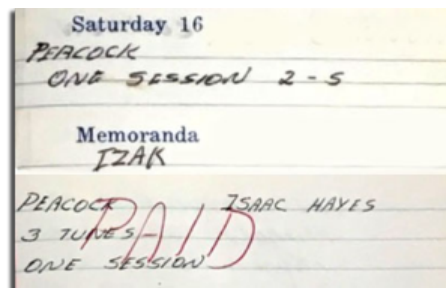 Saturday 16
PEACOCK
ONE SESSION 2-5
Memoranda
IZAK
PEACOCK ISAAC HAYES
PAID
3 TUNES
ONE SESSION